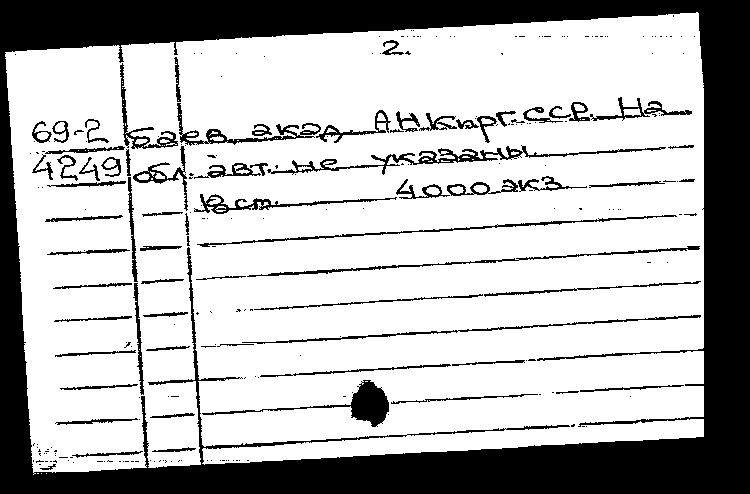 2.
69-2 баев, акад АН Кирг.ССР. На
4249 обл. авт. не указаны.
18 ст. 4000 экз